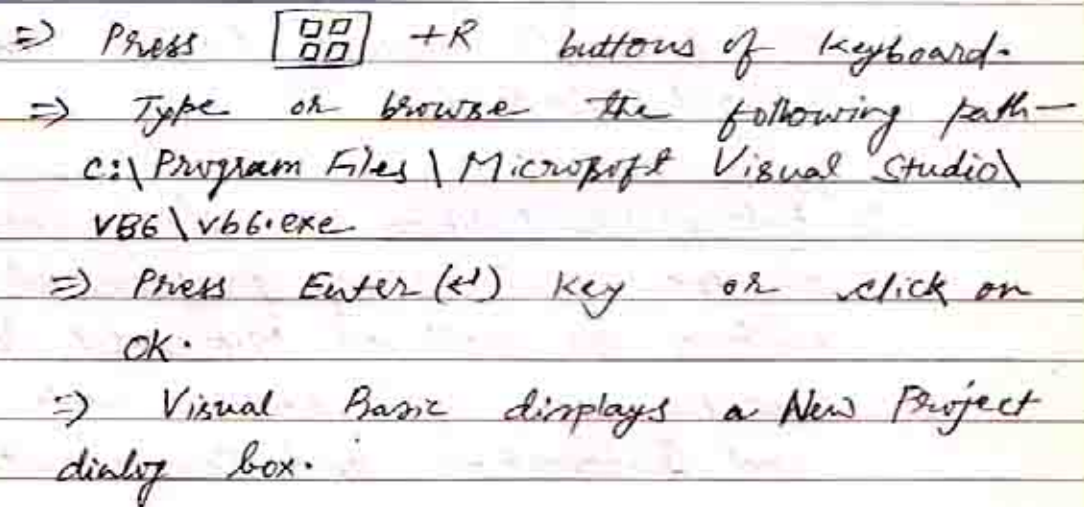 => Press [⊞] +R buttons of keyboard.
=> Type or browse the following path—
C:\Program Files\Microsoft Visual Studio\
VB6\vb6.exe
=> Press Enter (↵) key or click on
OK.
=> Visual Basic displays a New Project
dialog box.